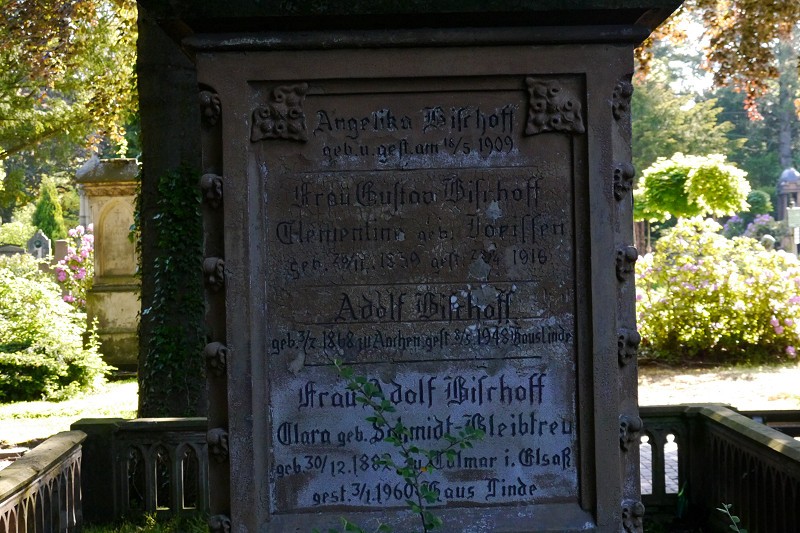 Angelika Bischoff
geb. u. gest. am 18/5 1909
Frau Gustav Bischoff
Clementine geb. Joeissen
geb. 1839 gest. 1916
Adolf Bischoff
geb. 3/7 1868 zu Aachen gest. 8/5 1948 Haus Linde
Frau Adolf Bischoff
Clara geb. Schmidt-Bleibtreu
geb. 30/12. 1882 zu Colmar i. Elsaß
gest. 3/1. 1960 Haus Linde